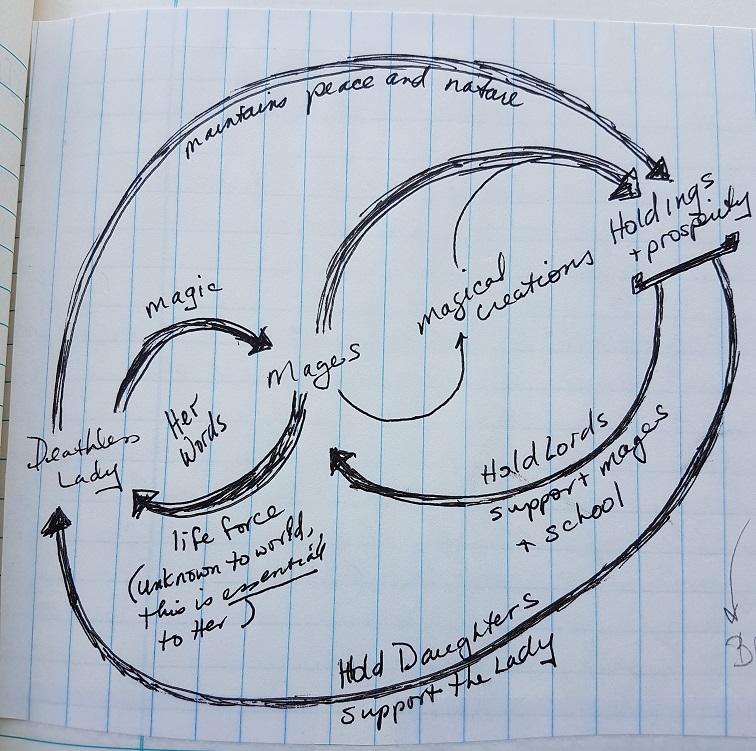 maintains peace and nature
Holdings
+ prosperity
magical
creations
magic
Mages
Her
Words
Deathless
Lady
Hold Lords
support mages
+ school
life force
(unknown to world,
this is essential
to Her)
Hold Daughters
support the Lady